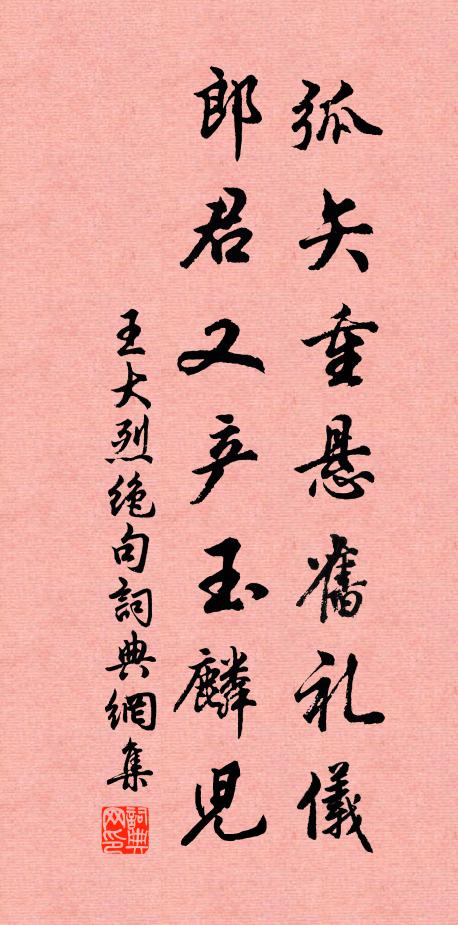 弧矢重悬舊礼儀
郎君又产玉麟児
王大烈绝句詞典網集
詞典网印